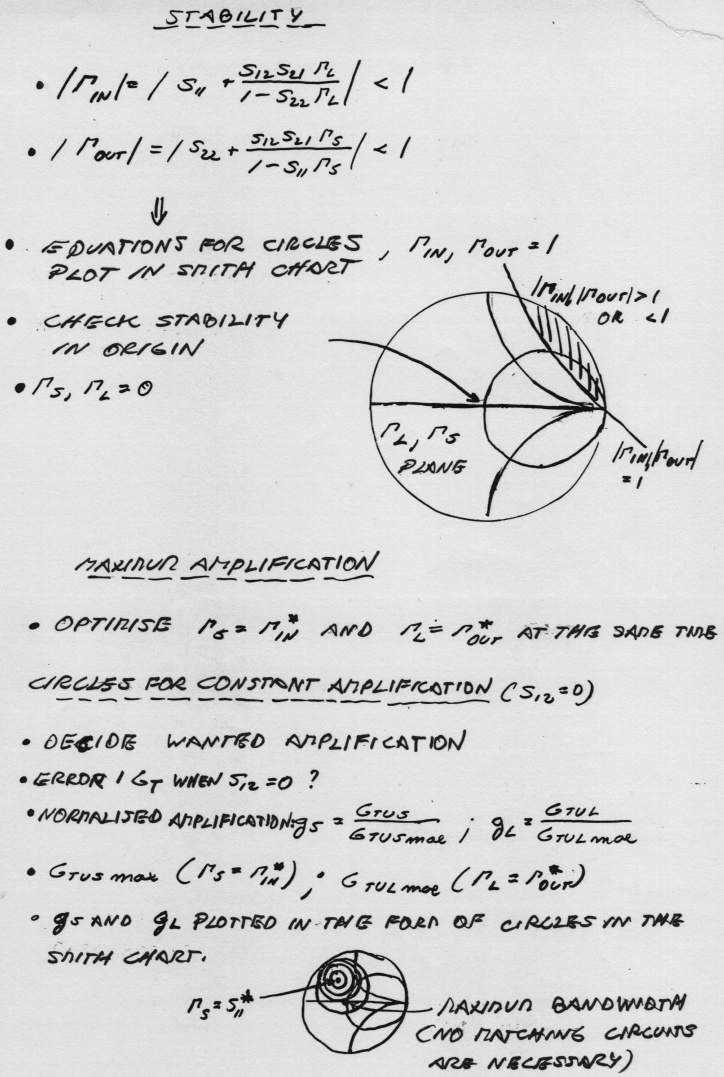 STABILITY
• |Γ_IN| = | S₁₁ + (S₁₂ S₂₁ Γ_L)/(1 - S₂₂ Γ_L) | < 1
• |Γ_OUT| = | S₂₂ + (S₁₂ S₂₁ Γ_S)/(1 - S₁₁ Γ_S) | < 1
⇓
• EQUATIONS FOR CIRCLES, Γ_IN, Γ_OUT = 1
PLOT IN SMITH CHART
|Γ_IN|, |Γ_OUT| > 1
OR < 1
• CHECK STABILITY
IN ORIGIN
• Γ_S, Γ_L = 0
Γ_L, Γ_S
PLANE
|Γ_IN|, |Γ_OUT|
= 1
MAXIMUM AMPLIFICATION
• OPTIMISE Γ_S = Γ_IN* AND Γ_L = Γ_OUT* AT THE SAME TIME
CIRCLES FOR CONSTANT AMPLIFICATION (S₁₂ = 0)
• DECIDE WANTED AMPLIFICATION
• ERROR I G_T WHEN S₁₂ = 0 ?
• NORMALISED AMPLIFICATION: g_S = G_TUS/G_TUS max ; g_L = G_TUL/G_TUL max
• G_TUS max (Γ_S = Γ_IN*) ; G_TUL max (Γ_L = Γ_OUT*)
• g_S AND g_L PLOTTED IN THE FORM OF CIRCLES IN THE
SMITH CHART.
Γ_S = S₁₁*
MAXIMUM BANDWIDTH
(NO MATCHING CIRCUITS
ARE NECESSARY)